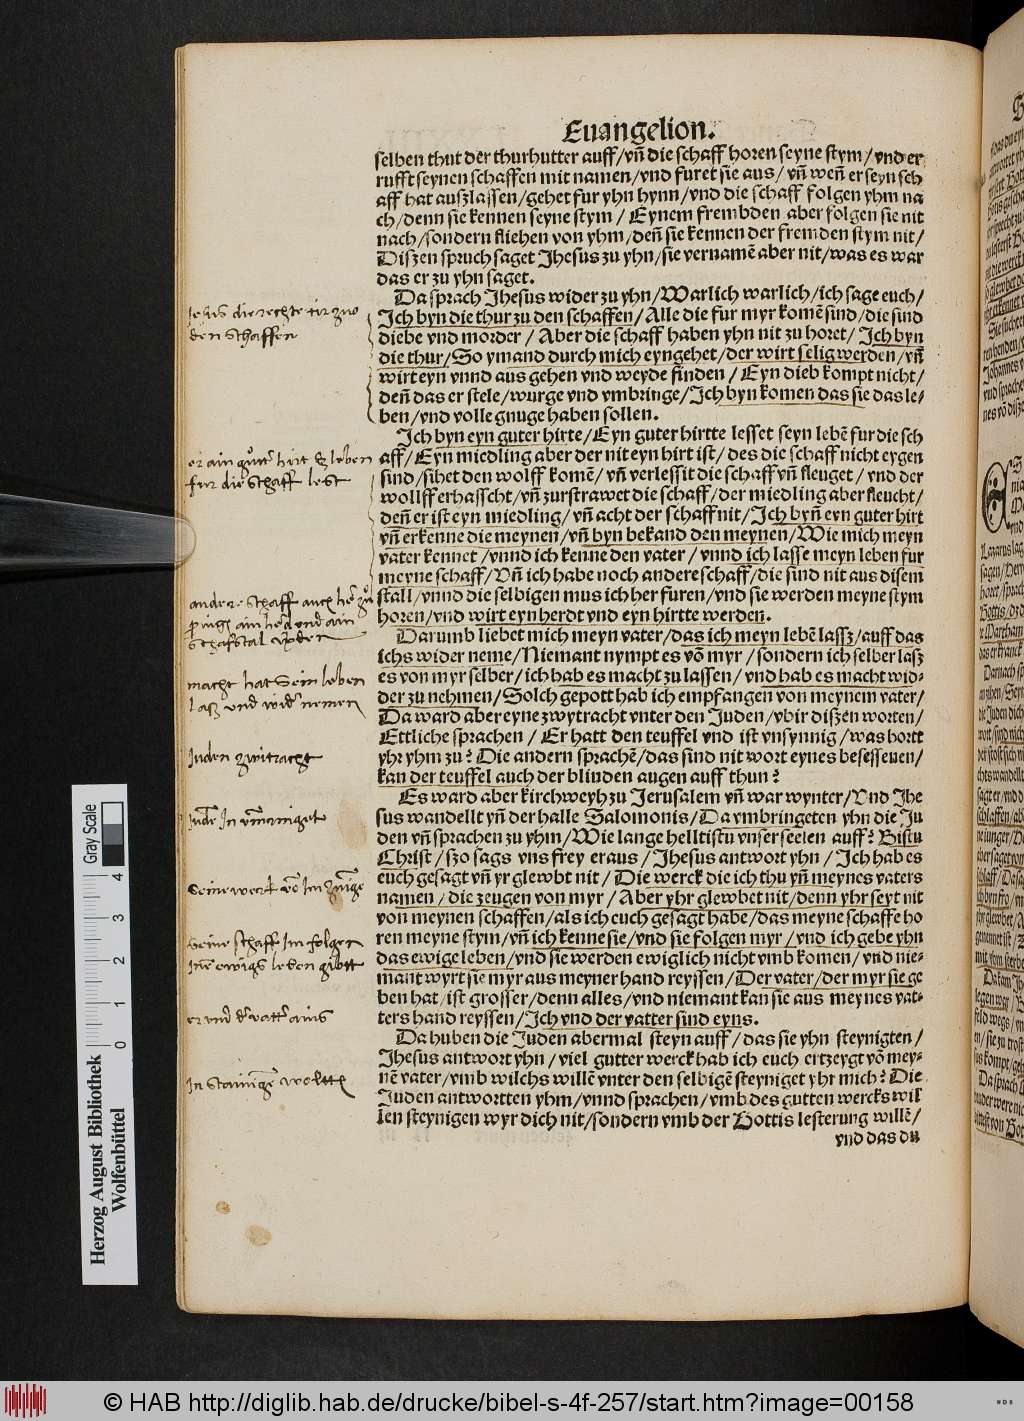 Euangelion.
selben thut der thurhutter auff/vn̄ die schaff horen seyne stym/vnd er
rufft seynen schaffen mit namen/vnd furet sie aus/vn̄ wen̄ er seyn sch
aff hat auszlassen/gehet fur yhn hynn/vnd die schaff folgen yhm na
ch/denn sie kennen seyne stym/Eynem frembden aber folgen sie nit
nach/sondern fliehen von yhm/den̄ sie kennen der fremden stym nit/
Diszen spruch saget Jhesus zu yhn/sie vernamē aber nit/was es war
das er zu yhn saget.
Da sprach Jhesus wider zu yhn/Warlich warlich/ich sage euch/
Jch byn die thur zu den schaffen/Alle die fur myr komē sind/die sind
diebe vnd morder/Aber die schaff haben yhn nit zu horet/Jch byn
die thur/So ymand durch mich eyngehet/der wirt selig werden/vn̄
wirt eyn vnnd aus gehen vnd weyde finden/Eyn dieb kompt nicht/
den̄ das er stele/wurge vnd vmbringe/Jch byn komen das sie das le-
ben/vnd volle gnuge haben sollen.
Jch byn eyn guter hirte/Eyn guter hirtte lesset seyn lebē fur die sch
aff/Eyn miedling aber der nit eyn hirt ist/des die schaff nicht eygen
sind/sihet den wolff komē/vn̄ verlessit die schaff vn̄ fleuget/vnd der
wollff erhasscht/vn̄ zurstrawet die schaff/der miedling aber fleucht/
den̄ er ist eyn miedling/vn̄ acht der schaff nit/Jch byn̄ eyn guter hirt
vn̄ erkenne die meynen/vn̄ byn bekand den meynen/Wie mich meyn
vater kennet/vnnd ich kenne den vater/vnnd ich lasse meyn leben fur
meyne schaff/Vn̄ ich habe noch andere schaff/die sind nit aus disem
stall/vnnd die selbigen mus ich her furen/vnd sie werden meyne stym
horen/vnd wirt eyn herdt vnd eyn hirtte werden.
Darumb liebet mich meyn vater/das ich meyn lebē lassz/auff das
ichs wider neme/Niemant nympt es vō myr/sondern ich selber lasz
es von myr selber/ich hab es macht zu lassen/vnd hab es macht wid-
der zu nehmen/Solch gepott hab ich empfangen von meynem vater/
Da ward aber eyne zwytracht vnter den Juden/vbir diszen worten/
Ettliche sprachen/Er hatt den teuffel vnd ist vnsynnig/was hortt
yhr yhm zu? Die andern sprachē/das sind nit wort eynes besessenen/
kan der teuffel auch der blinden augen auff thun?
Es ward aber kirchweyh zu Jerusalem vn̄ war wynter/Vnd Jhe
sus wandellt yn̄ der halle Salomonis/Da vmbringeten yhn die Ju
den vn̄ sprachen zu yhm/Wie lange helltistu vnser seelen auff? Bistu
Christ/szo sags vns frey eraus/Jhesus antwort yhn/Jch hab es
euch gesagt vn̄ yr glewbt nit/Die werck die ich thu yn̄ meynes vaters
namen/die zeugen von myr/Aber yhr glewbet nit/denn yhr seyt nit
von meynen schaffen/als ich euch gesagt habe/das meyne schaffe ho
ren meyne stym/vn̄ ich kenne sie/vnd sie folgen myr/vnd ich gebe yhn
das ewige leben/vnd sie werden ewiglich nicht vmb komen/vnd nie-
mant wyrt sie myr aus meyner hand reyssen/Der vater/der myr sie ge
ben hat/ist grosser/denn alles/vnd niemant kan sie aus meynes vat-
ters hand reyssen/Jch vnd der vatter sind eyns.
Da huben die Juden abermal steyn auff/das sie yhn steynigten/
Jhesus antwort yhn/viel gutter werck hab ich euch ertzeygt vō mey-
nē vater/vmb wilchs willē vnter den selbigē steyniget yhr mich? Die
Juden antwortten yhm/vnnd sprachen/vmb des gutten wercks wil
len steynigen wyr dich nit/sondern vmb der Gottis lesterung willē/
vnd das du
Jesus die rechte tir zw
den schaffen
er ain gutter hirt das leben
fur die schaff lest
andere schaff auch her zu
schafstal
macht hat sein leben
lasz vnd wider nemen
Juden zwitracht
seine schaff im folgen
ewigs leben gibt
er vnd der vatter ains
Gray Scale
0 1 2 3 4
Herzog August Bibliothek
Wolfenbüttel
© HAB http://diglib.hab.de/drucke/bibel-s-4f-257/start.htm?image=00158